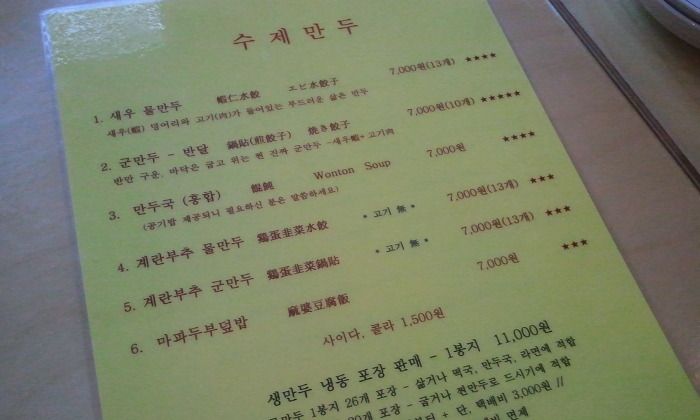 수제만두
1. 새우 물만두 蝦仁水餃 エビ水餃子 7,000원(13개) ★★★★
새우(蝦) 덩어리와 고기(肉)가 들어있는 부드러운 삶은 만두
2. 군만두 - 반달 鍋貼(煎餃子) 焼き餃子 7,000원(10개) ★★★★★
반만 구운, 바닥은 굽고 위는 찐 진짜 군만두 -새우蝦+고기肉
3. 만두국 (홍합) 餛飩 Wonton Soup 7,000원 ★★★★
(공기밥 제공되니 필요하신 분은 말씀하세요)
4. 계란부추 물만두 鶏蛋韭菜水餃 * 고기 無 * 7,000원(13개) ★★★
5. 계란부추 군만두 鶏蛋韭菜鍋貼 * 고기 無 * 7,000원(13개) ★★★
6. 마파두부덮밥 麻婆豆腐飯 7,000원 ★★★
사이다, 콜라 1,500원
생만두 냉동 포장 판매 - 1봉지 11,000원
물만두 1봉지 26개 포장 - 삶거나 떡국, 만두국, 라면에 적합
20개 포장 - 굽거나 찐만두로 드시기에 적합
+ 단, 택배비 3,000원 //
면제